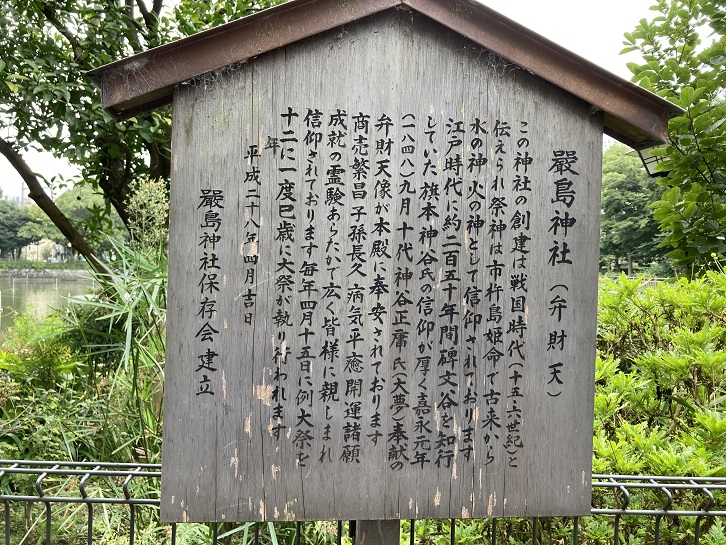 嚴島神社（弁財天）
この神社の創建は戦国時代（十五・六世紀）と
伝えられ祭神は市杵島姫命で古来から
水の神・火の神として信仰されております
江戸時代に約二百五十年間碑文谷を知行
していた旗本神谷氏の信仰が厚く嘉永元年
（一八四八）九月十代神谷正庸氏（大夢）奉献の
弁財天像が本殿に奉安されております
商売繁昌子孫長久病気平癒開運諸願
成就の霊験あらたかで広く皆様に親しまれ
信仰されております毎年四月十五日に例大祭を
十二年に一度巳歳に大祭が執り行われます
平成二十八年四月吉日
嚴島神社保存会建立